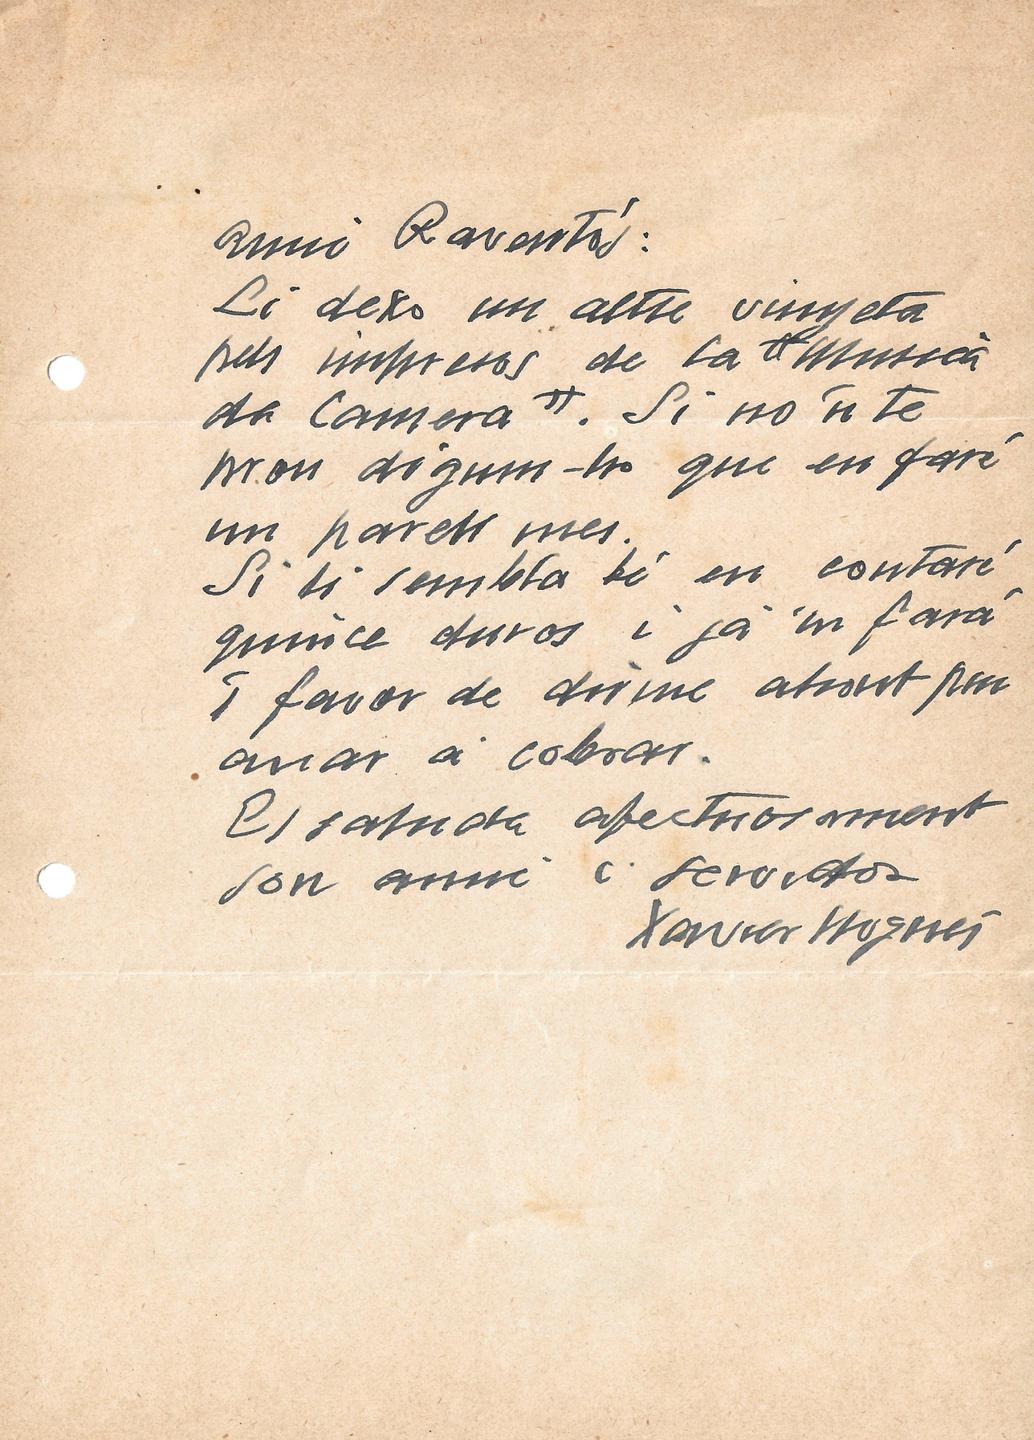 Amic Raventós:
Li dexo un altre vinyeta
pels impresos de la "Musica
da Camera". Si no 'n te
prou digum-ho que en faré
un parell mes.
Si li sembla bé en contaré
quince duros i já 'm fará
'l favor de dirme ahont puc
anar á cobrar.
El saluda afectuosament
son amic i servidor
Xavier Nogués